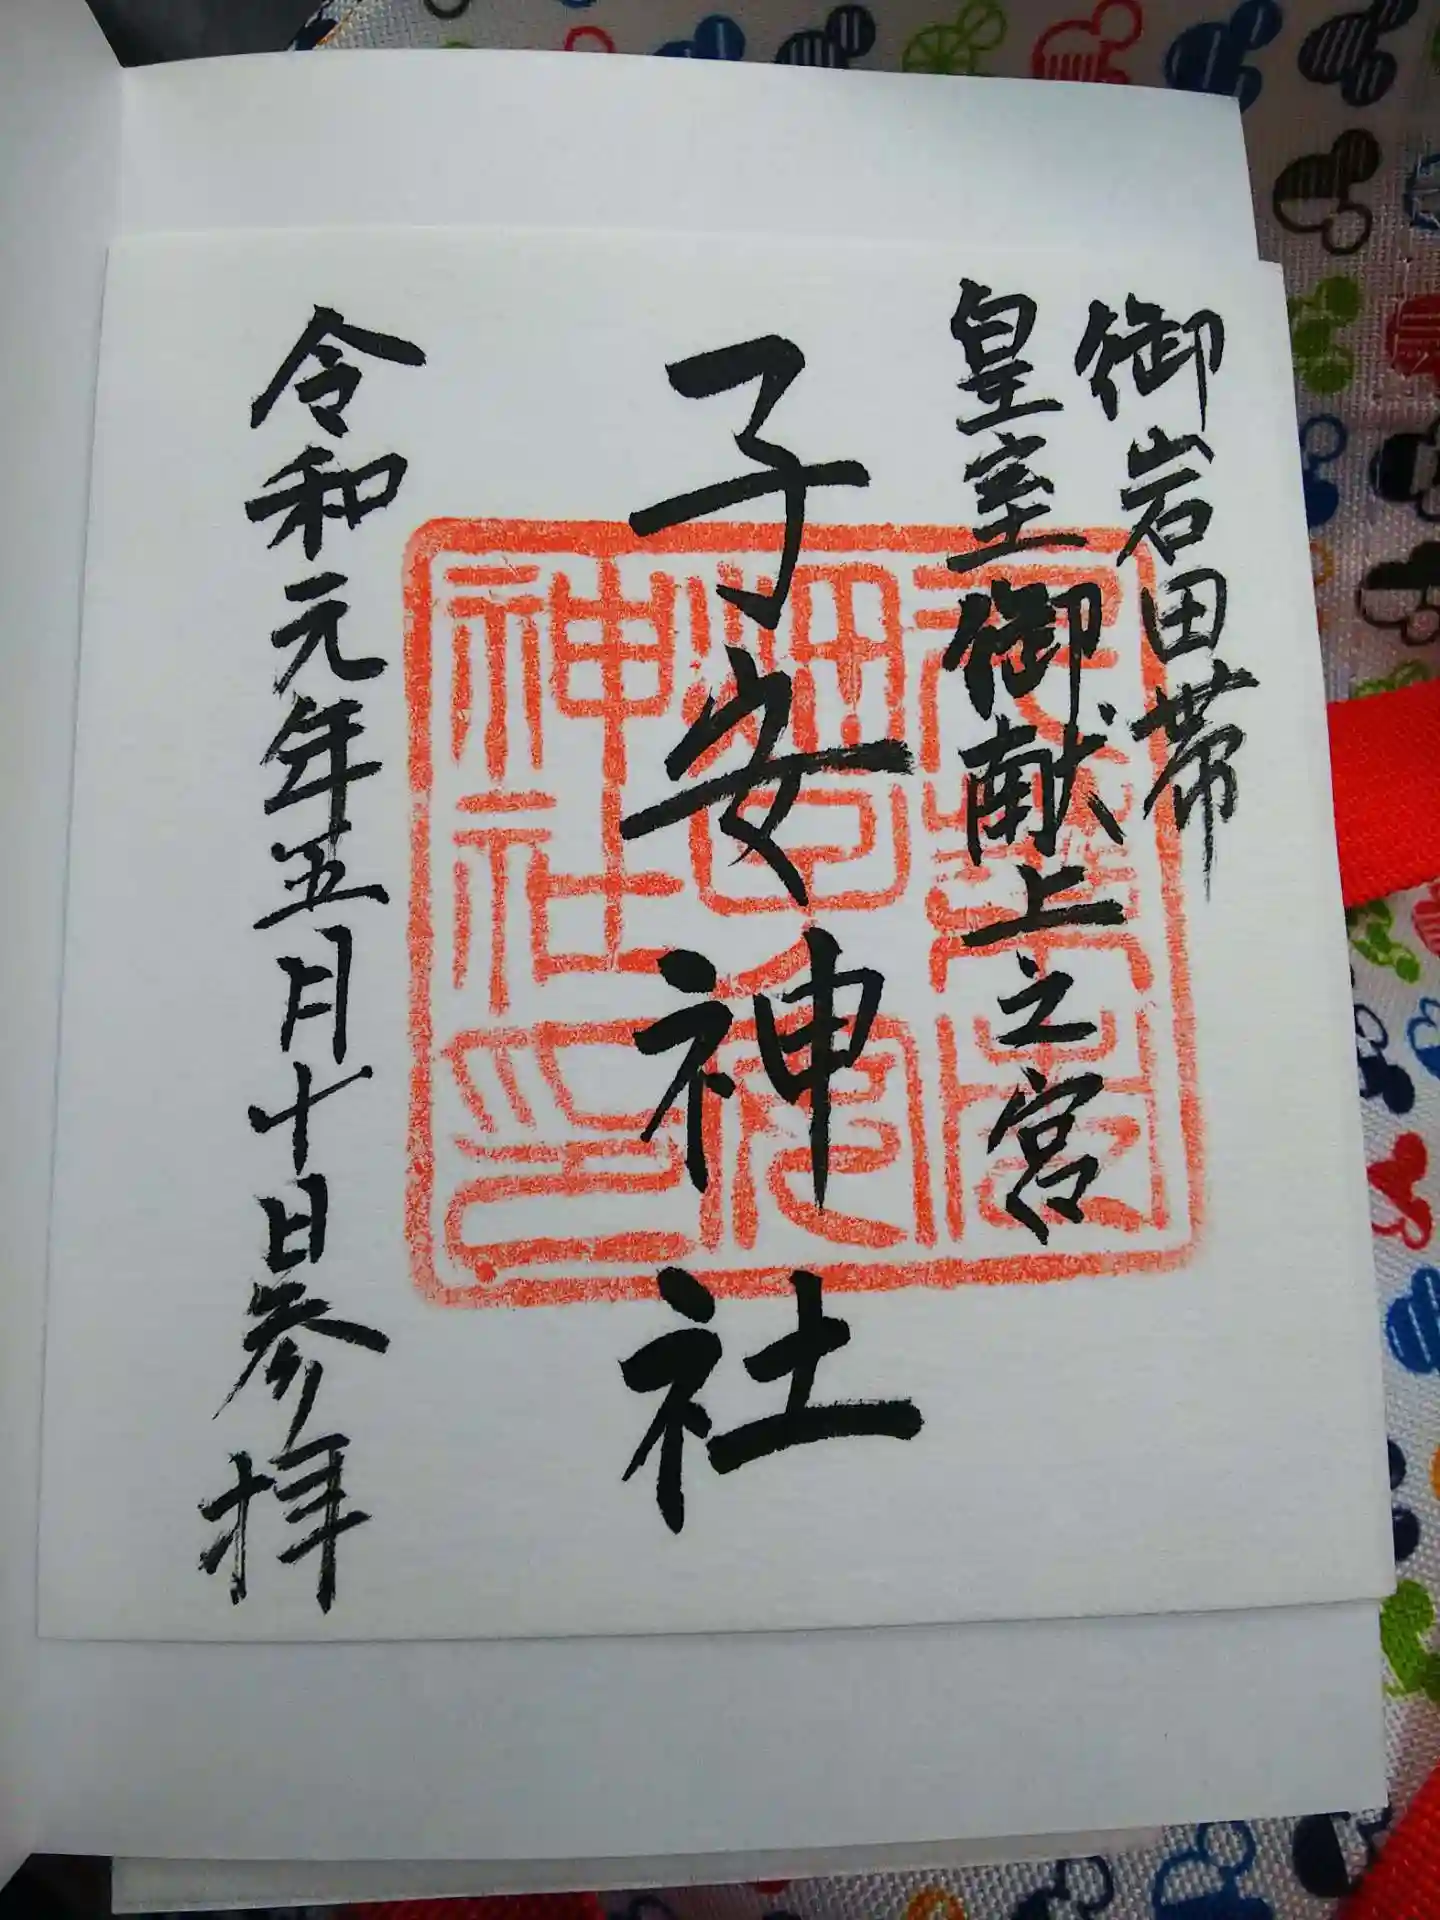 御岩田帯
皇室御献上之宮
子安神社
令和元年五月十日参拝
神社印